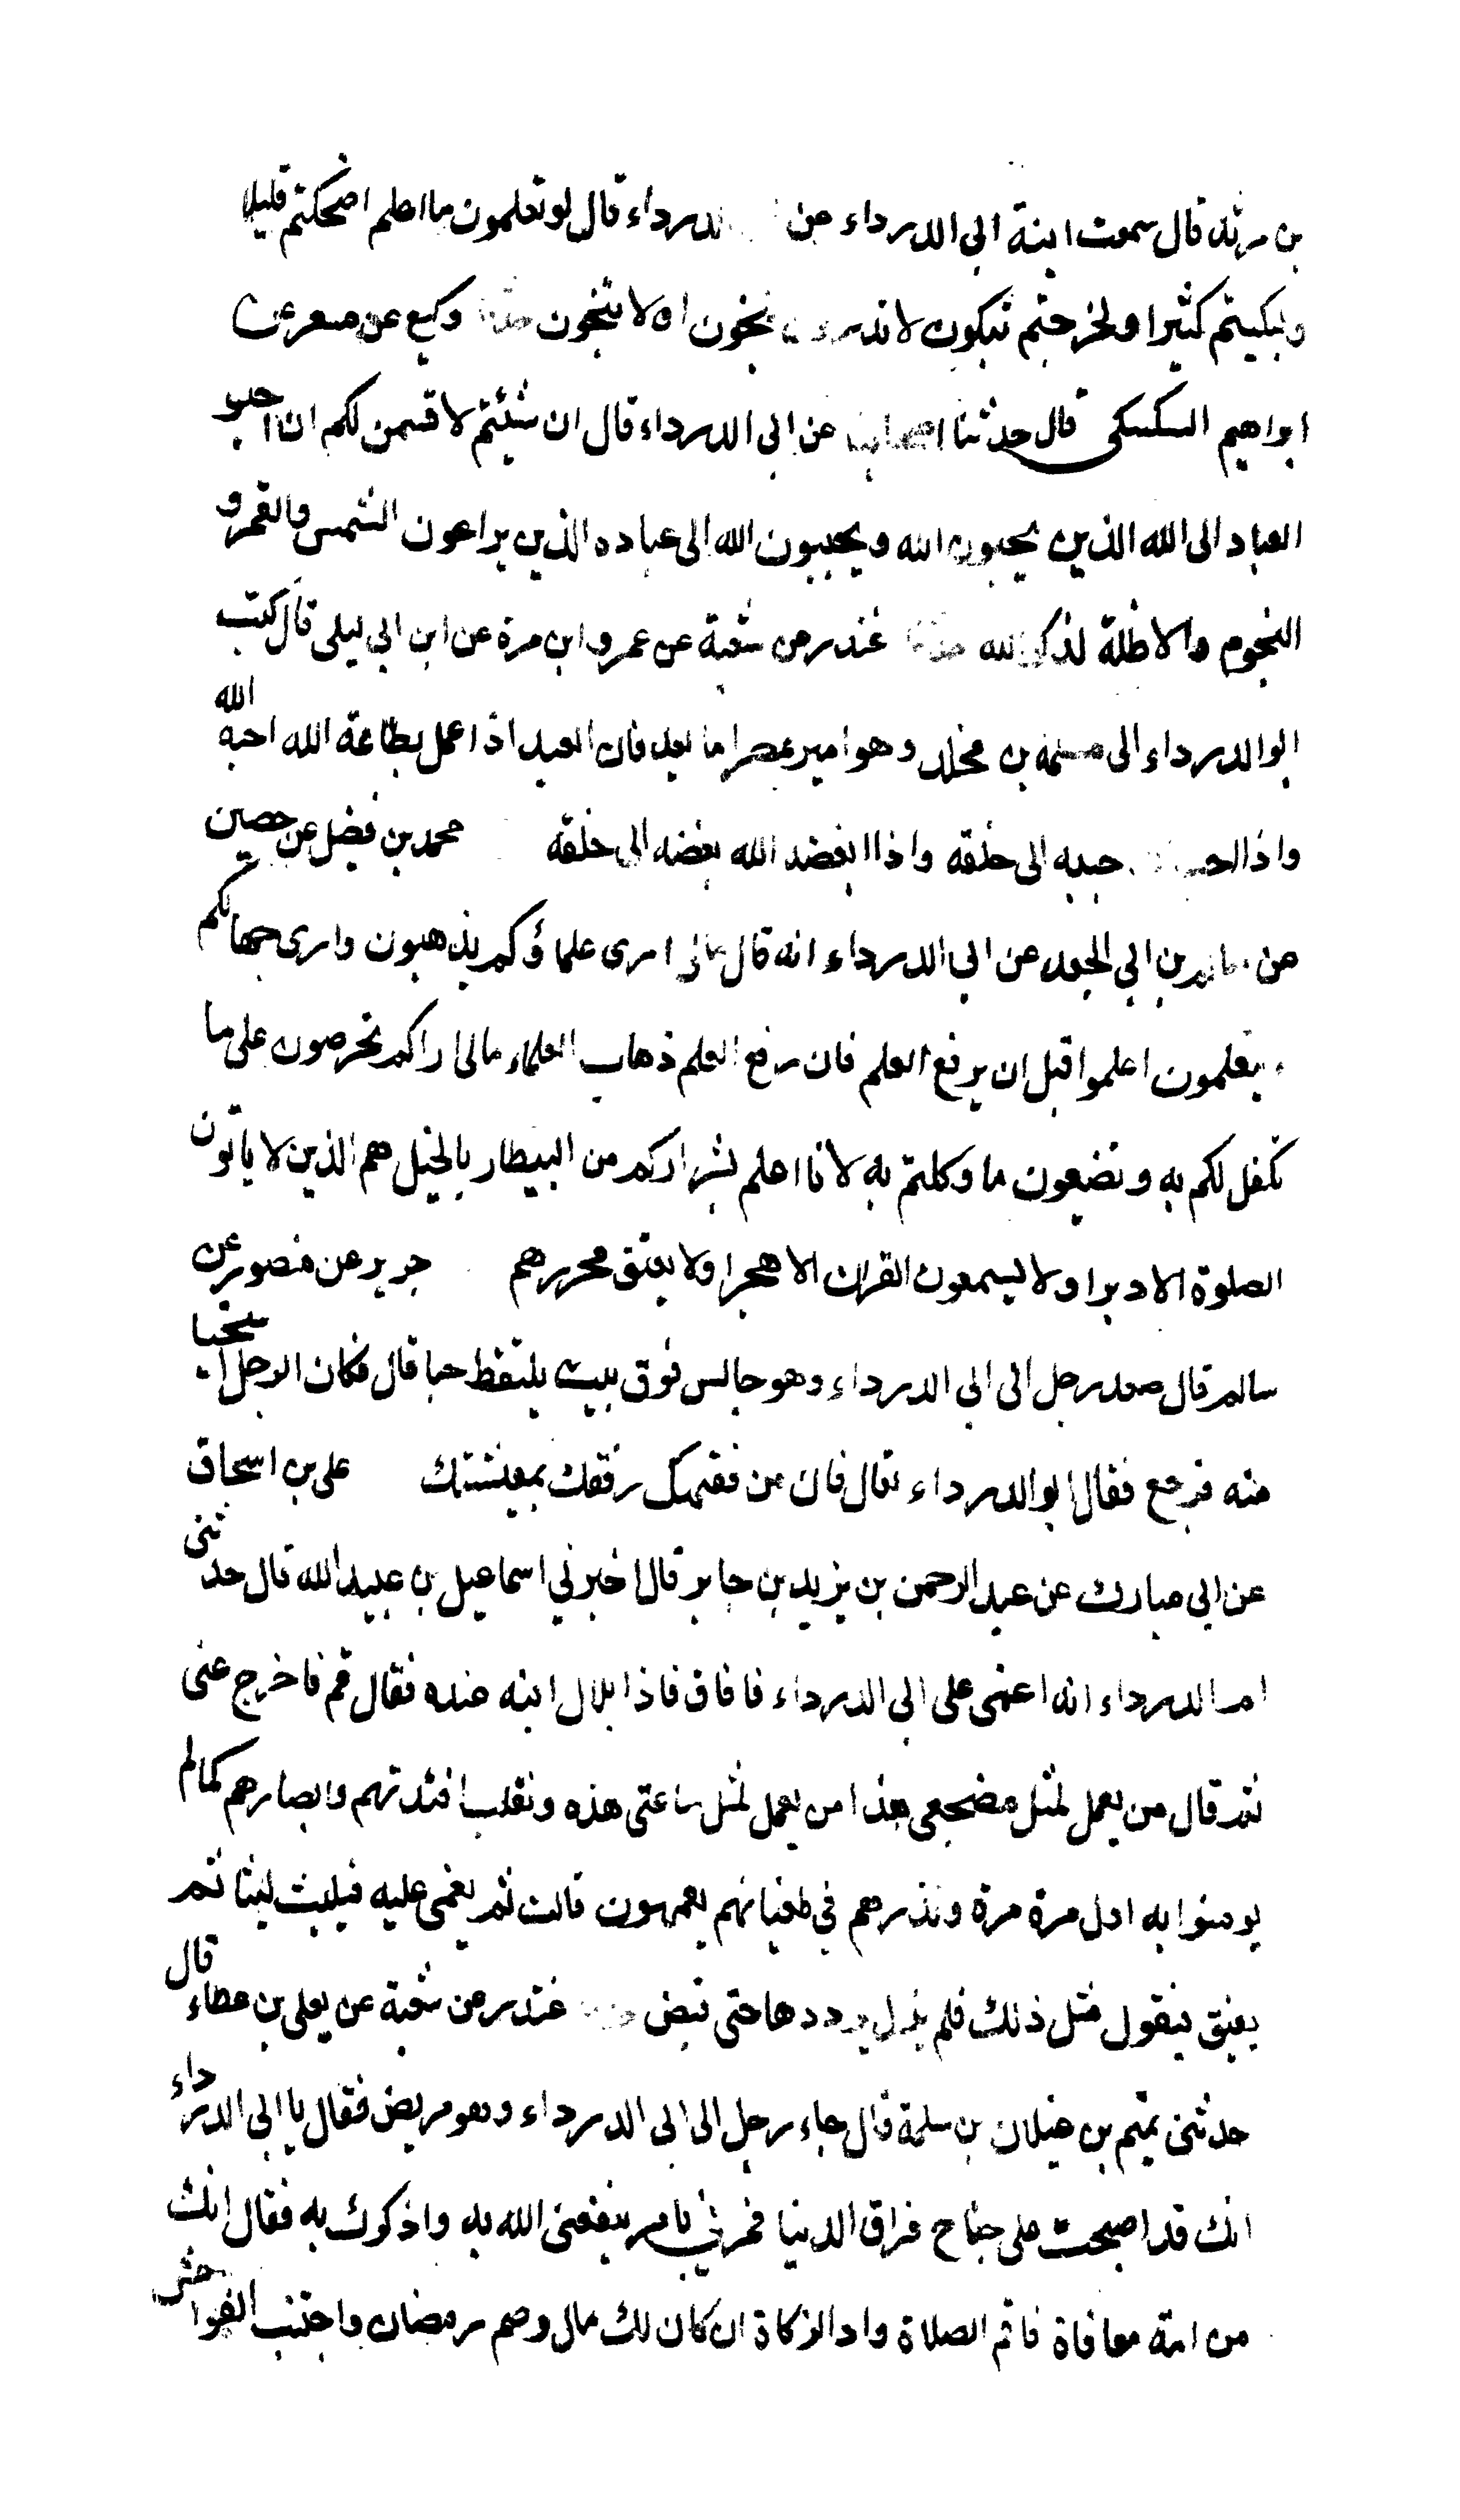 بن مرثد قال سمعت ابنة ابي الدرداء عن الدرداء قال لو تعلمون ما اعلم اضحكتم قليلا
ولبكيتم كثيرا ولخرجتم تبكون لا تدرون تنجون او لا تنجون حدثنا وكيع عن مسعر عن
ابراهيم السكسكي قال حدثنا اصحابنا عن ابي الدرداء قال ان شئتم لاقسمن لكم ان احب
العباد الى الله الذين يحبون الله ويحببون الله الى عباده الذين يراعون الشمس والقمر و
النجوم والاظلة لذكر الله حدثنا غندر عن شعبة عن عمرو ابن مرة عن ابن ابي ليلى قال كتب
ابو الدرداء الى مسلمة بن مخلد وهو امير بمصر اما بعد فان العبد اذا عمل بطاعة الله احبه الله
واذا احبه حببه الى خلقه واذا ابغضه الله بغضه الى خلقه محمد بن فضيل عن حصين
عن سالم بن ابي الجعد عن ابي الدرداء انه قال مالي ارى علماؤكم يذهبون وارى جهالكم
يتعلمون اعلموا قبل ان يرفع العلم فان رفع العلم ذهاب العلماء مالي اراكم تحرصون على ما
تكفل لكم به وتضيعون ما وكلتم به لانا اعلم بشراركم من البيطار بالخيل هم الذين لا ياتون
الصلوة الا دبرا ولا يسمعون القران الا هجرا ولا يعتق محررهم جرير عن منصور عن
سالم قال صعد رجل الى ابي الدرداء وهو جالس فوق بيت يلتقط حبا قال فكان الرجل استحيا
منه فرجع فقال ابو الدرداء تعال فان من فقهك رفقك بمعيشتك على بن اسحاق
عن ابي مبارك عن عبد الرحمن بن يزيد بن جابر قال اخبرني اسماعيل بن عبيد الله قال حدثتنى
ام الدرداء انه اغمى على ابي الدرداء فافاق فاذا بلال ابنه عنده فقال قم فاخرج عنى
ثم قال من يعمل لمثل مضجعى هذا من يعمل لمثل ساعتى هذه ونقلب افئدتهم وابصارهم كما لم
يومنوا به اول مرة مرة ونذرهم في طغيانهم يعمهون قالت ثم يغمى عليه فيلبث لبثا ثم
يفيق فيقول مثل ذلك فلم يزل يرددها حتى قبض حدثنا غندر عن شعبة عن يعلى بن عطاء قال
حدثنى تميم بن غيلان بن سلمة قال جاء رجل الى ابي الدرداء وهو مريض فقال يا ابي الدرداء
انك قد اصبحت على جناح فراق الدنيا فمرني بامر ينفعنى الله به واذكرك به فقال انك
من امة معافاة فاقم الصلاة واد الزكاة ان كان لك مال وصم رمضان واجتنب الفواحش